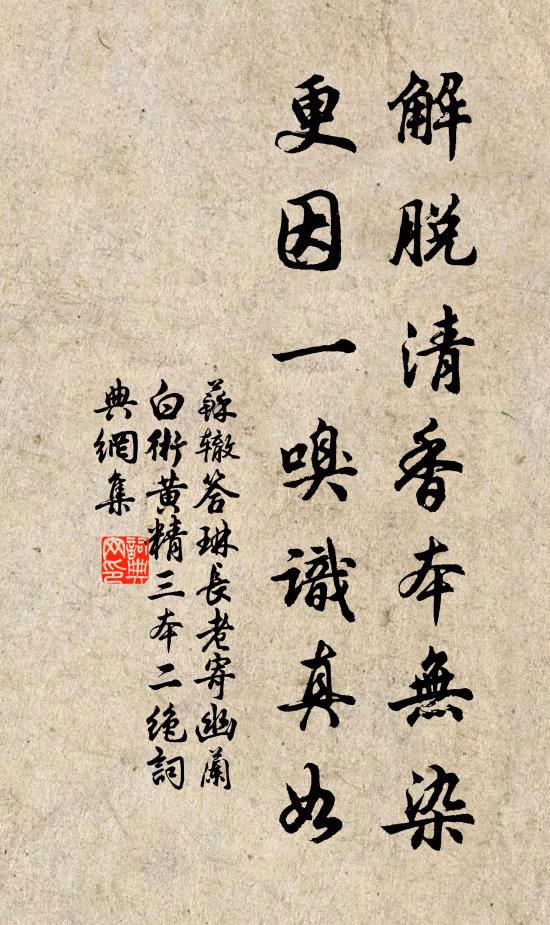 解脫清香本無染
更因一嗅識真如
蘇轍答琳長老寄幽蘭
白術黃精三本二絕詞
典網集
詞典
网印